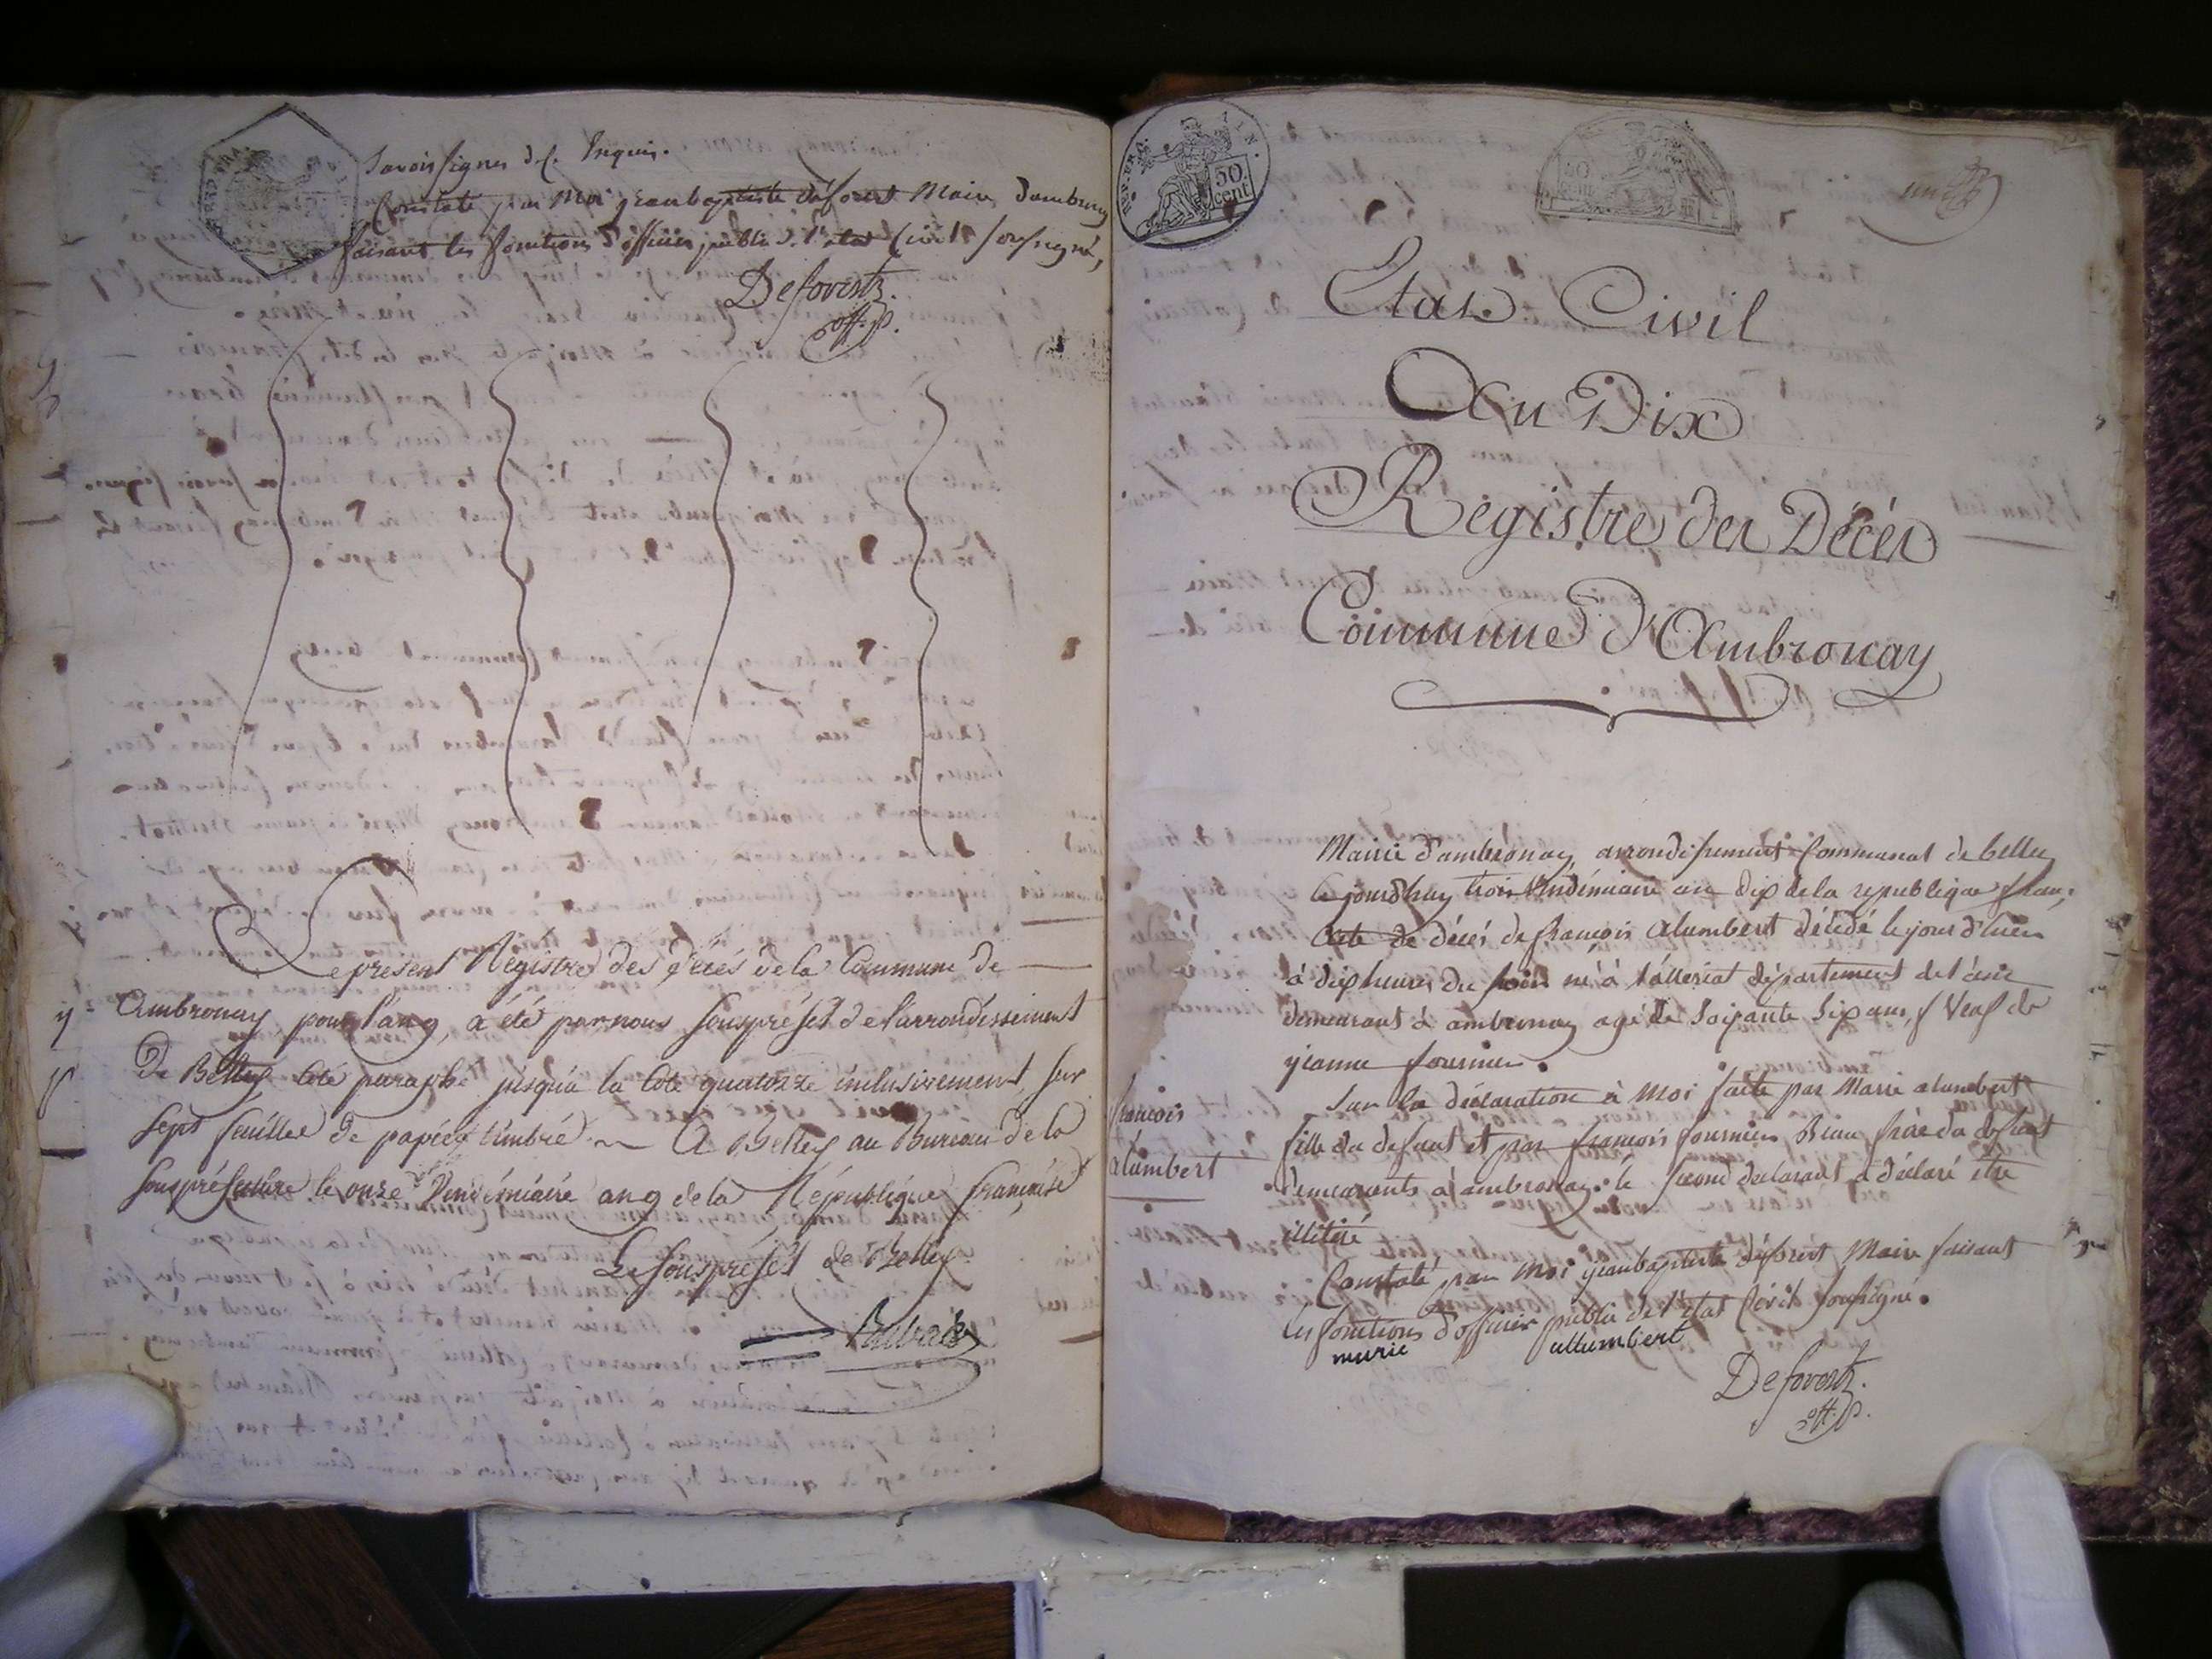 savoir signer d.c. Enquis.
Constaté par Moi jeanbaptiste déforest Maire dambronay
faisant les fonctions d'officier public de l'etat Civil soussigné,
Deforestz.
off. p.
Le present Régistre des décés de la Commune de
Ambronay pour l'an 9, a été par nous Souspréfet de l'arrondissement
De Belley Coté paraphé jusqu'a la Cote quatorze inclusivement, sur
Sept feuilles de papier timbré. A Belley au Bureau de la
Souspréfecture le onze Vendémiaire an 9 de la République française
Le souspréfet de Belley
REP. FRA.
50
cent
Etat Civil
An Dix
Registre des Décés
Commune d'Ambronay
Mairie d'ambronay, arrondissement Communal de belley
Ce jourdhuy trois Vendémiaire an dix de la republique fran.
Acte de décés de françois alumbert décédé le jour d'hier
à dix heures du soir né à département de l'ain
demeurant à ambronay agé de soixante six ans, Veuf de
jeanne fournier.
Sur la déclaration à Moi faite par Marie alumbert
fille du defunt et par francois fournier Beau frère du defunt
demeurants à ambronay. le second declarant a déclaré être
illitéré
francois
alumbert
Constaté par Moi jeanbaptiste déforest Maire faisant
les fonctions d'officier public de l'etat Civil soussigné.
marie allumbert
Deforestz.
off. p.